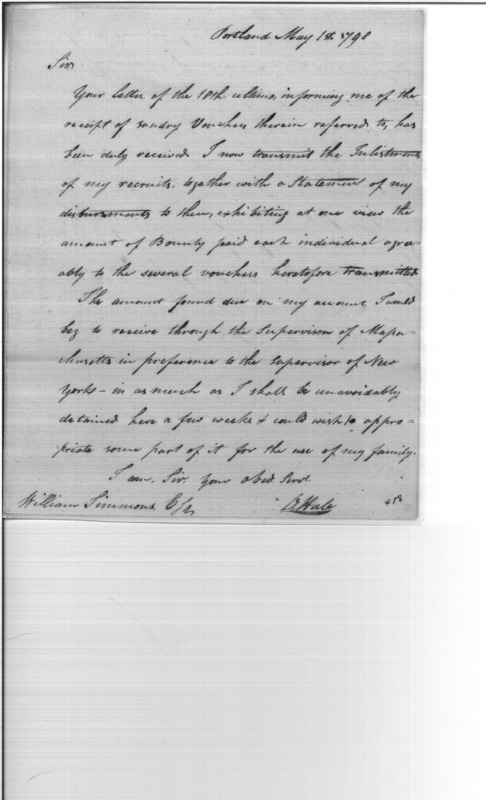 Portland May 18. 1798
Sir,
Your letter of the 18th ultimo, informing me of the
receipt of sundry Vouchers therein referred to, has
been duly received. I now transmit the Inlistments
of my recruits, together with a Statement of my
disbursments to them, exhibiting at one view the
amount of Bounty paid each individual agre-
ably to the several vouchers heretofore transmitted
The amount found due on my account, I would
beg to receive through the Supervisor of Massa-
chusetts in preference to the Supervisor of New
York - in as much as I shall be unavoidably
detained here a few weeks & could wish to appro-
priate some part of it for the use of my family.
I am, Sir, your obed Servt
William Simmons, Esq. Hale